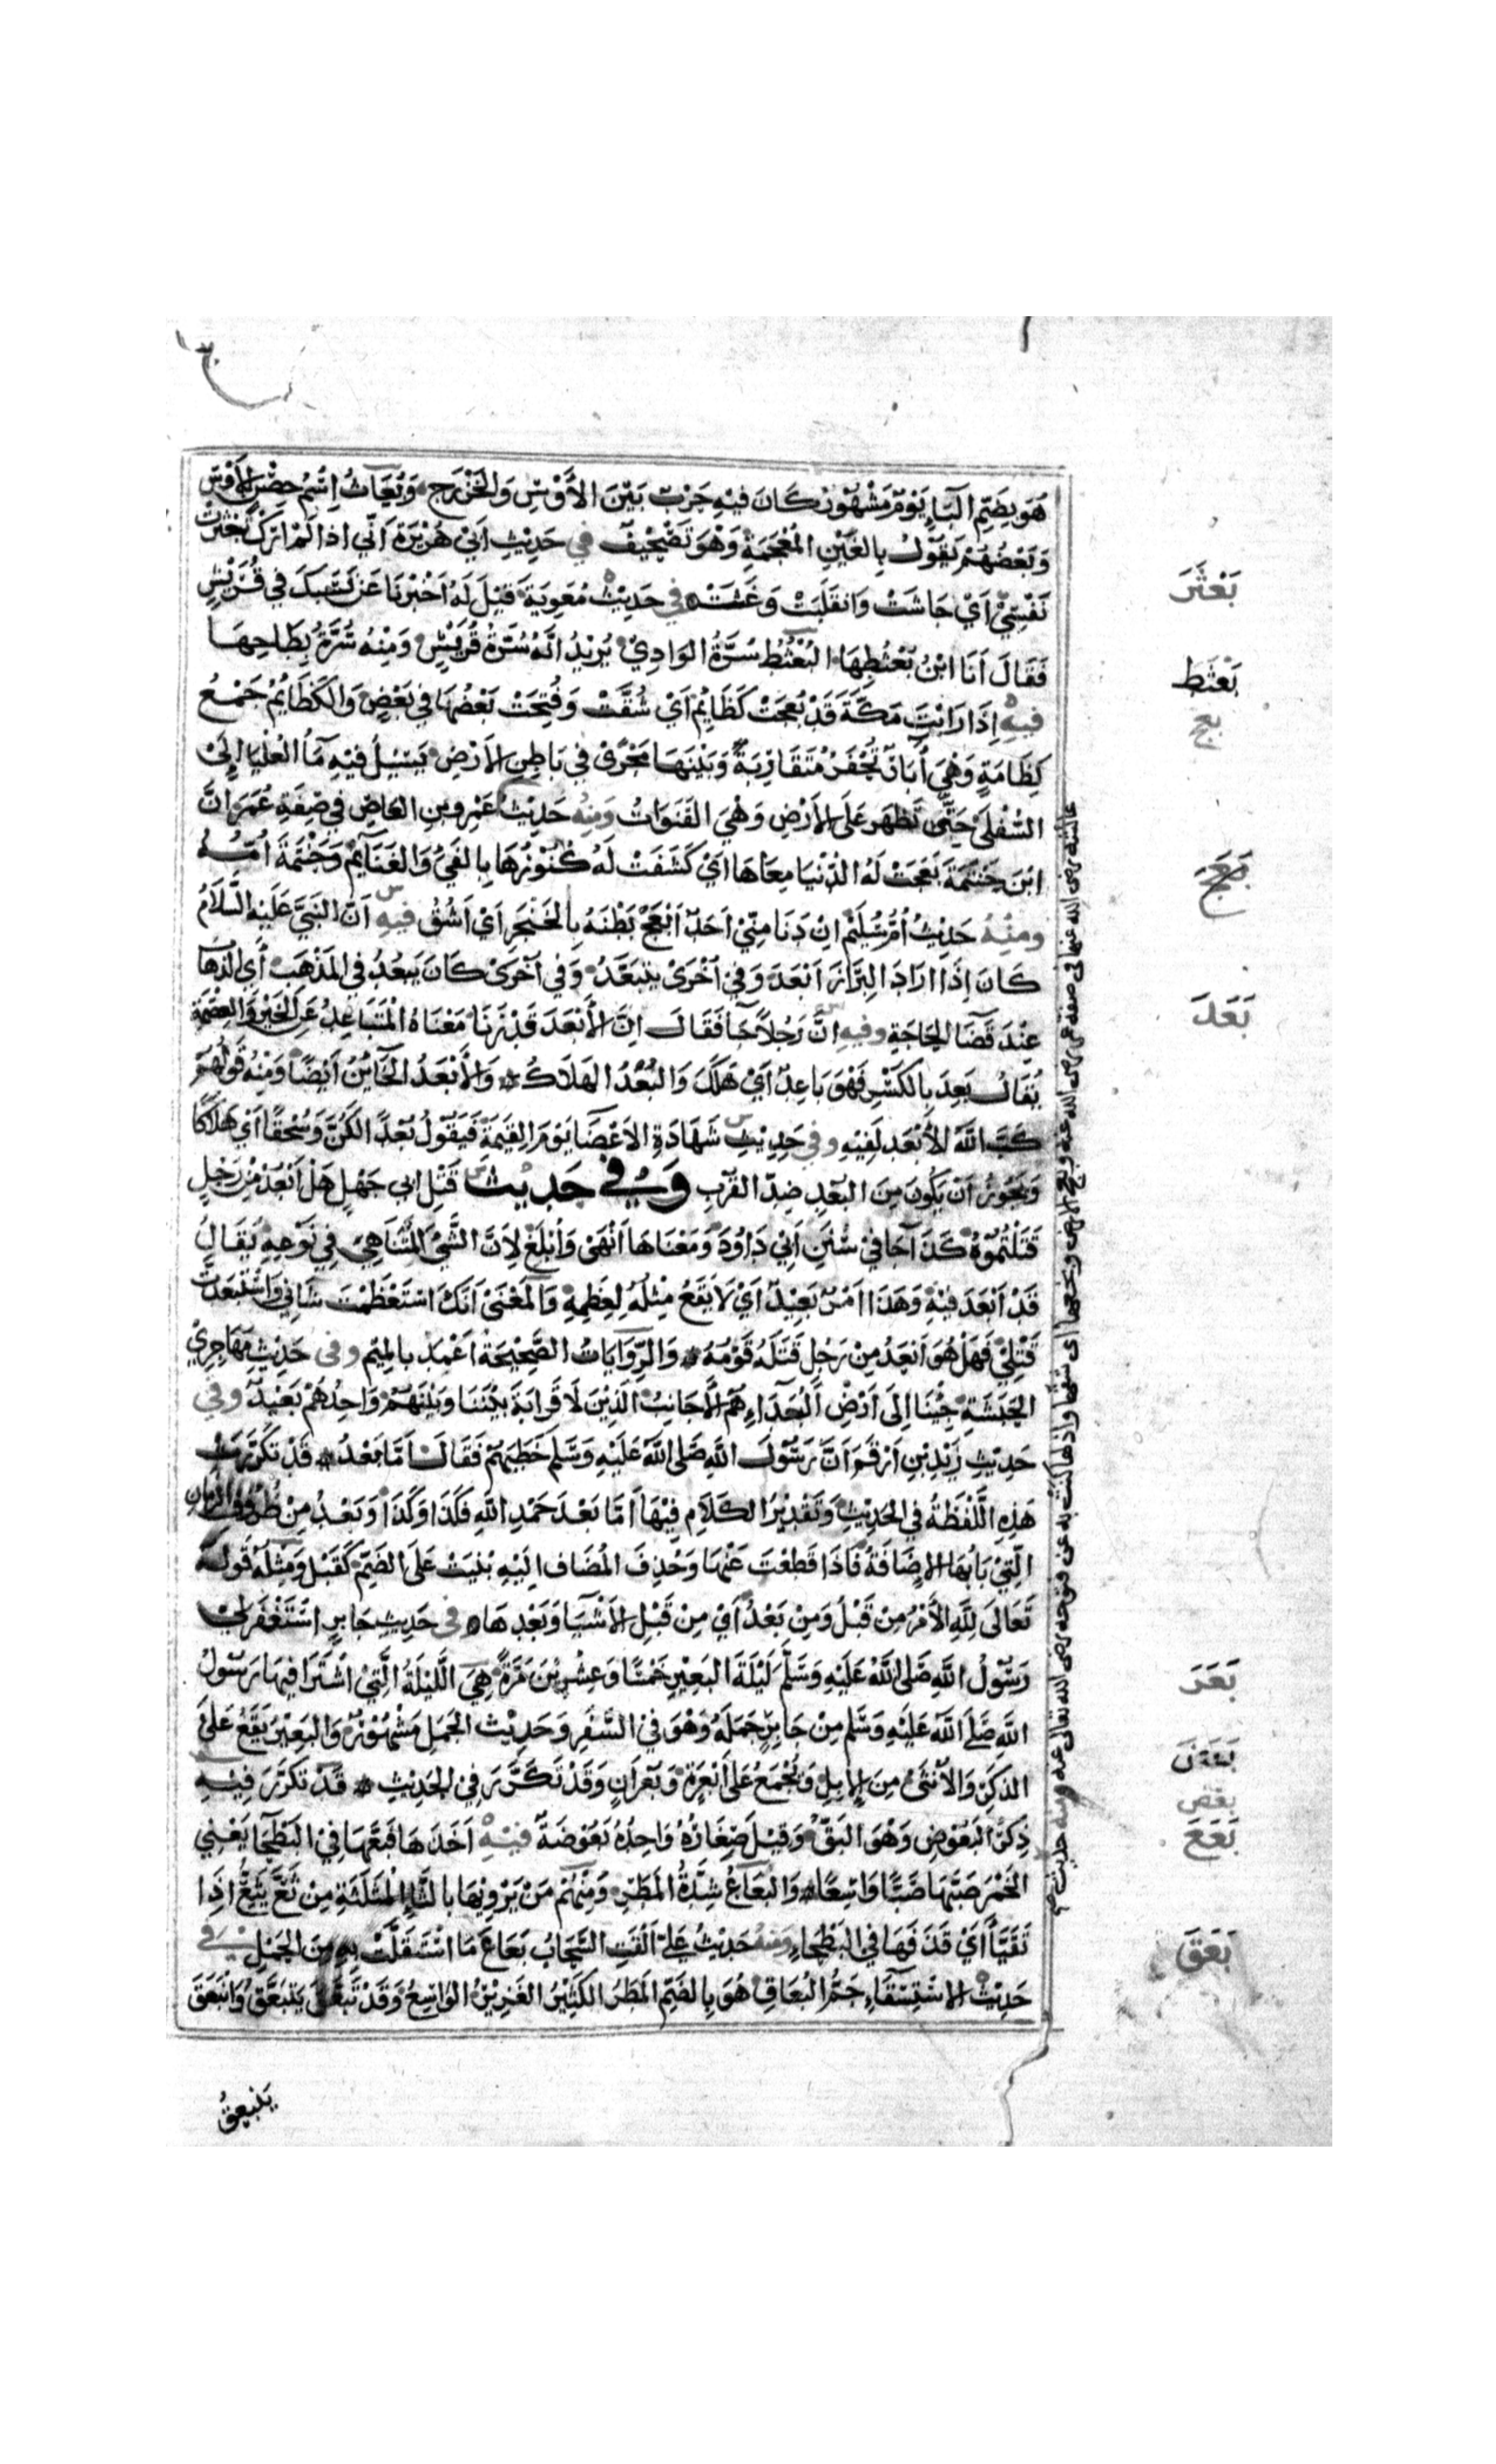 هُوَ بِضَمِّ البَاءِ يَوْمٌ مَشْهُورٌ كَانَ فِيهِ حَرْبٌ بَيْنَ الأَوْسِ وَالخَزْرَجِ وَبُعَاثُ اِسْمُ حِصْنٍ لِلأَوْسِ
وَبَعْضُهُمْ يَقُولُ بِالغَيْنِ المُعْجَمَةِ وَهُوَ تَصْحِيفٌ في حَدِيْثِ أَبِي هُرَيْرَةَ اَنِّي اذا لَمْ اَرَكَ تَبَعْثَرَتْ
نَفْسِي أَيْ جَاشَتْ وَانْقَلَبَتْ وَغَثَتْ في حَدِيْثِ مُعٰوِيَةَ قِيْلَ لَهُ اَخْبِرْنَا عَنْ نَسَبِكَ فِي قُرَيْشٍ
فَقَالَ أَنَا ابْنُ بُعْثُطِهَا البُعْثُطُ سُرَّةُ الوَادِي يُرِيْدُ اَنَّهُ سُرَّةُ قُرَيْشٍ وَمِنْهُ سُرَّةُ بِطَاحِهَا
فيهِ اِذَا رَاَيْتَ مَكَّةَ قَدْ بُعِجَتْ كَظَايِمَ أَيْ شُقَّتْ وَفُتِحَتْ بَعْضُهَا فِي بَعْضٍ وَالكَظَايِمُ جَمْعُ
كِظَامَةٍ وَهِيَ أَبَارٌ تُحْفَرُ مُتَقَارِبَةٌ وَبَيْنَهَا مَجْرًى فِي بَاطِنِ الأَرْضِ يَسِيْلُ فِيْهِ مَاُ العُلْيَا اِلَى
السُّفْلَى حَتَّى تَظْهَر عَلَى الأَرْضِ وَهْيَ القَنَوَاتُ وَمِنْهُ حَدِيْثُ عَمْرِو بنِ العَاصِ فِي صِفَةِ عُمَرَ اَنَّ
ابْنَ حَنْتَمَةَ بَعَجَتْ لَهُ الدُّنْيَا مِعَاهَا اَيْ كَشَفَتْ لَهُ كُنُوْزَهَا بِالفَيْ وَالغَنَايِمِ وَحَنْتَمَةَ اُمُّهُ
ومِنْهُ حَدِيْثُ اُمِّ سُلَيْمٍ اِنْ دَنَا مِنِّي اَحَدٌ اَبْعَجْ بَطْنَهُ بِالخَنْجَرِ اَيْ اَشُقُّ فيهِ اَنَّ النَبِيَّ عَلَيْهِ السَّلَامُ
كَانَ إِذَا ارَادَ البِرَازَ اَبْعَدَ وَفِيْ اُخْرَى يَتَبَعَّدُ وَفِي اُخْرَى كَانَ يَبْعُدُ فِي المَذْهَبِ أَيِ الذَّهَابِ
عِنْدَ قَضَا الحَاجَةِ وفيهِ اَنَّ رَجُلاً جَا فَقَالَ اِنَّ الأَبْعَدَ قَدْ زَنَا مَعْنَاهُ المُتَبَاعِدُ عَنِ الخَيْرِ وَالعِصْمَةِ
يُقَالُ بَعِدَ بِالكَسْرِ فَهُوَ بَاعِدٌ أَيْ هَلَكَ وَالبُعْدُ الهَلَاكُ وَالأَبْعَدُ الخَايِنُ اَيْضًا وَمِنْهُ قَوْلُهُمْ
كَبَّ اللهُ الأَبْعَدَ لِفِيْهِ وفِي حَدِيْثِ شَهَادَةِ الاَعْضَا يَوْمَ القِيٰمَةِ فَيَقُولُ بُعْدًا لَكُنَّ وَسُحْقًا اَيْ هَلَاكًا
وَيَجُوْزُ اَنْ يَكُونَ مِنَ البُعْدِ ضِدِّ القُرْبِ وَفِي حَدِيْث قَتْلِ ابي جَهْلٍ هَلْ اَبْعَدُ مِنْ رَجُلٍ
قَتَلْتُمُوْهُ كَذَا جَا فِيْ سُنَنِ اَبِي دَاوُدَ وَمَعْنَاهَا اَنْهَى وَأَبْلَغُ لِاَنَّ الشَّيْ المُتَنَاهِيَ فِي نَوْعِهِ يُقَالُ
قَدْ اَبْعَدَ فِيْهِ وَهَذَا اَمْرٌ بَعِيْدٌ اَيْ لَا يَقَعُ مِثْلُهُ لِعِظَمِهِ وَالمَعْنَى اَنَّكَ اسْتَعْظَمْتَ شَانِي وَاسْتَبْعَدْتَ
قَتْلِيْ فَهَلْ هُوَ اَبْعَدُ مِنْ رَجُلٍ قَتَلَهُ قَوْمُهُ وَالرِّوَايَاتُ الصَّحِيْحَةُ اَعْمَدُ بالمِيْمِ وفي حَدِيْثِ مُهَاجِرِي
الحَبَشَةِ جِيْنَا اِلَى اَرْضِ البُعَدَاءِ هُمُ الأَجَانِبُ الَّذِيْنَ لَا قَرَابَةَ بَيْنَنَا وَبَيْنَهُمْ وَاحِدُهُمْ بَعِيْدٌ وفي
حَدِيْثِ زَيْدِ بْنِ اَرْقَمَ اَنَّ رَسُوْلَ اللهِ صَلى اللهُ عَلَيْهِ وَسَلَّم خَطَبَهُمْ فَقَالَ اَمَّا بَعْدُ قَدْ تَكَرَّرَتْ
هَذِهِ اللَّفْظَةُ فِي الحَدِيْثِ وَتَقْدِيْرُ الكَلَامِ فِيْهَا اَمَّا بَعْدَ حَمْدِ اللهِ فَكَذَا وَكَذَا وَبَعْدُ مِنْ ظُرُوْفِ الزمان
الَّتِيْ بَابُهَا الاِضَافَةُ فَاِذَا قُطِعَتْ عَنْهَا وَحُذِفَ المُضَاف اِلَيْهِ بُنِيَتْ عَلَى الضَمِّ كَقَبْلُ وَمِثْلُهُ قَولُهُ
تَعَالَى لِلّهِ الأَمْرُ مِنْ قَبْلُ وَمِنْ بَعْدُ اَيْ مِنْ قَبْلِ الاَشْيَا وَبَعْدِهَا في حَدِيْثِ جَابِرٍ اسْتَغْفَرَ لِيْ
رَسُوْلُ اللهِ صَلى اللهُ عَلَيْهِ وَسَلَّمَ لَيْلَةَ البَعِيْرِ خَمْسًا وَعِشْرِيْنَ مَرَّةً هِيَ اللَّيْلَةُ الَّتِيْ اشْتَرَا فِيهَا رَسُوْلُ
اللهِ صَلَى اللهُ عَلَيْهِ وَسَلَّم مِنْ جَابِرٍ جَمَلَهُ وَهُوَ فِيْ السَّفَرِ وَحَدِيْثُ الجَمَلِ مَشْهُوْرٌ وَالبَعِيْرُ يَقَعُ عَلَى
الذَكَرِ وَالاُنْثَى مِنَ الاِبِلِ وَيُجْمَعُ عَلَى اَبْعِرَةٍ وَبُعْرَانٍ وَقَدْ تَكَرَّرَ فِي الحَدِيْثِ قَدْ تَكَرَّرَ فِيْهِ
ذِكْرُ البَعُوْضِ وَهُوَ البَقُّ وَقِيْلَ صِغَارُهُ وَاحِدُهُ بَعُوْضَةٌ فيْهِ اَخَذَهَا فَبَعَّهَا فِي البَطْحَا يَعْنِي
الخَمْرَ صَبَّهَا صَبًّا وَاسِعًا وَالبَعَاعُ شِدَّةُ المَطَرِ وَمِنْهُمْ مَنْ يَرْوِيْهَا بِالثَّاءِ المُثَلَّثَةِ مِنْ ثَعَّ يَثِعُّ اِذَا
تَقَيَّاَ أَيْ قَذَفَهَا فِي البَطْحَاءِ ومنهُ حَدِيْثُ عَلِيٍّ اَلْقَتِ السَّحَابُ بَعَاعَ مَا اسْتَقَلَّتْ بِهِ مِنَ الحَمْلِ في
حَدِيْثِ الاِسْتِسْقَاءِ جَمُّ البُعَاقِ هُوَ بِالضَمِّ المَطَرُ الكَثِيْرُ الغَزِيْرُ الوَاسِعُ وَقَدْ تَبَعَّقَ يَتَبَعَّقُ وَانْبَعَقَ
يَنْبَعِقُ
بَعْثَرَ
بُعْثُط
بعج
بَعَجَ
بَعَدَ
بَعَرَ
بعض
بَعَعَ
بَعَقَ